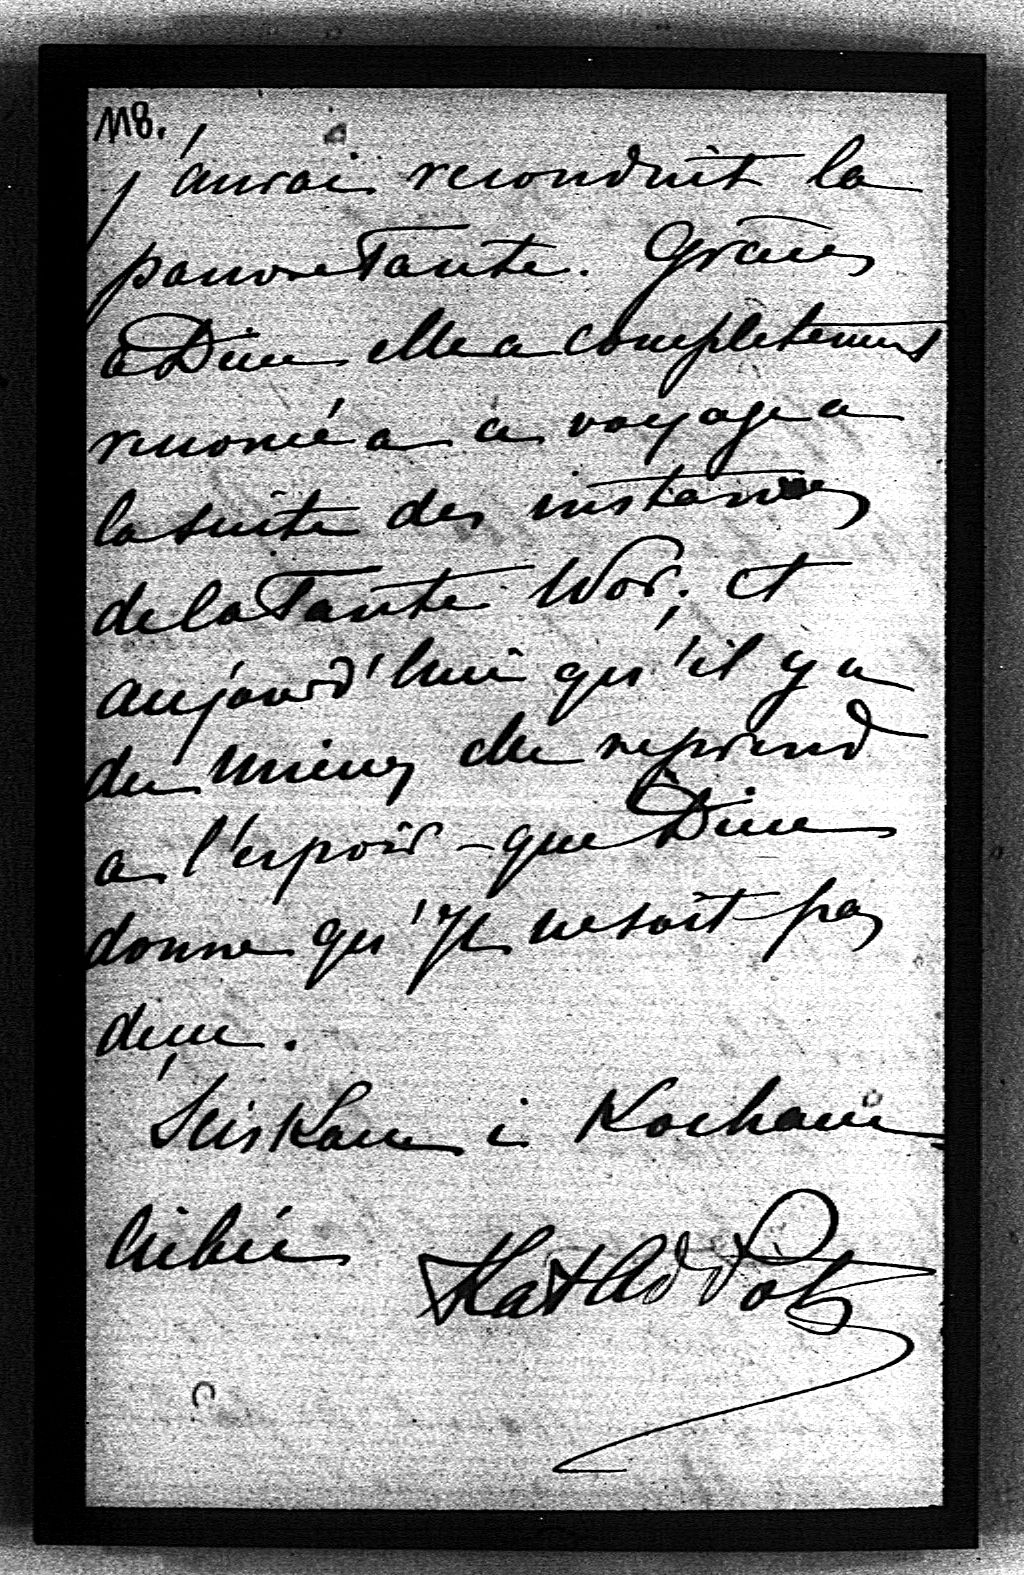 118.
j'aurai reconduit la
pauvre Tante. Grâces
à Dieu elle a completement
renoncé a ce voyage a
la suite des instances
de la Tante Wor; et
aujourd'hui qu'il y a
du mieux elle reprend
a l'espoir – que Dieu
donne qu'Il ne soit pas
deçu.
Sciskam i Kocham
Ciebie
KathAd Pot